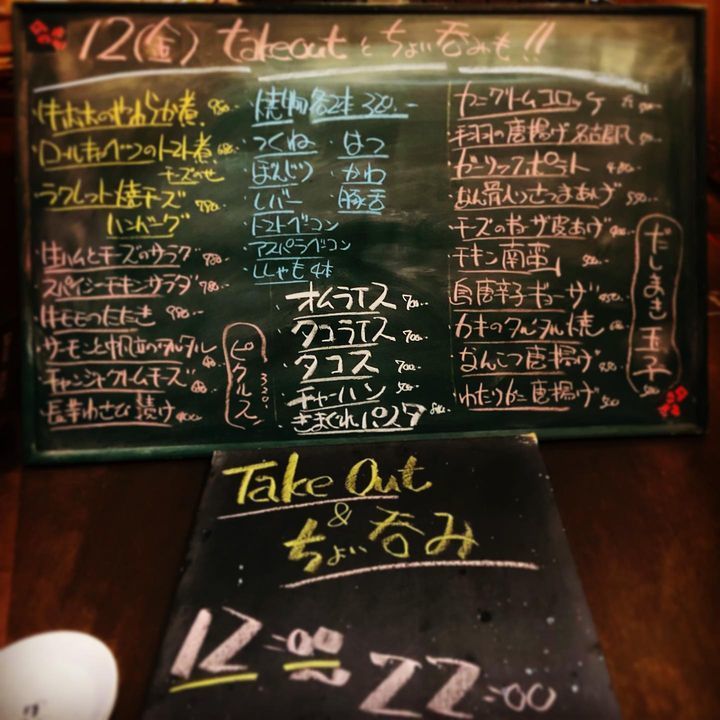 12(金) takeoutとちょい呑みも!!
・牛ホホのやわらか煮
・ロールキャベツのトマト煮
チーズのせ
・ラクレット焼チーズ
ハンバーグ
・生ハムとチーズのサラダ 700..
・スパイシーチキンサラダ 780..
・牛モモのたたき 980..
・サーモンと帆立のタルタル
・チャンジャクリームチーズ
・長芋わさび漬け 400
ピクルス 300
・焼物各2本 380.-
・つくね ・はつ
・ぼんじり ・かわ
・レバー ・豚舌
・トマトベコン
・アスパラベコン
・ししゃも 4本
・オムライス 700..
・タコライス 700..
・タコス 700..
・チャーハン 500..
・きまぐれパスタ
・カニクリームコロッケ
・手羽の唐揚げ名古屋風
・ガーリックポテト
・なん骨入さつまあげ 550..
・チーズのギョーザ皮あげ
・チキン南蛮
・鳥唐辛子ギョーザ
・カキのタルタル焼
・なんこつ唐揚げ
・わたりがに唐揚げ
だしまき玉子
Take Out
&
ちょい呑み
12:00
~22:00